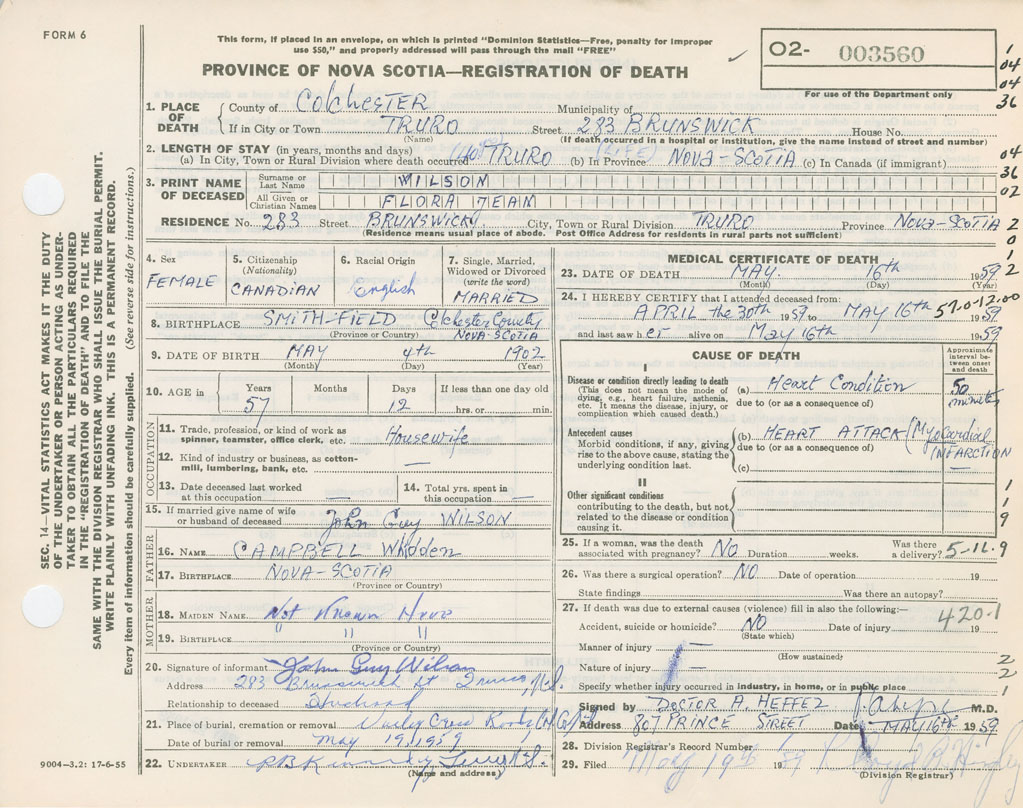 FORM 6
This form, if placed in an envelope, on which is printed "Dominion Statistics—Free, penalty for improper
use $50," and properly addressed will pass through the mail "FREE"
PROVINCE OF NOVA SCOTIA—REGISTRATION OF DEATH
O2- 003560
For use of the Department only
1
04
04
36
04
36
02
2
0
1
2
SEC. 14—VITAL STATISTICS ACT MAKES IT THE DUTY
OF THE UNDERTAKER OR PERSON ACTING AS UNDER-
TAKER TO OBTAIN ALL THE PARTICULARS REQUIRED
IN THE "REGISTRATION OF DEATH" AND TO FILE THE
SAME WITH THE DIVISION REGISTRAR WHO SHALL ISSUE THE BURIAL PERMIT.
WRITE PLAINLY WITH UNFADING INK. THIS IS A PERMANENT RECORD.
Every item of information should be carefully supplied. (See reverse side for instructions.)
1. PLACE OF DEATH { County of Colchester Municipality of
If in City or Town TRURO Street 283 BRUNSWICK House No.
(Name) (If death occurred in a hospital or institution, give the name instead of street and number)
2. LENGTH OF STAY (in years, months and days) (LIFE)
(a) In City, Town or Rural Division where death occurred TRURO (b) In Province NOVA-SCOTIA (c) In Canada (if immigrant)
3. PRINT NAME OF DECEASED { Surname or Last Name WILSON
All Given or Christian Names FLORA JEAN
RESIDENCE No. 283 Street BRUNSWICK City, Town or Rural Division TRURO Province NOVA-SCOTIA
(Residence means usual place of abode. Post Office Address for residents in rural parts not sufficient)
4. Sex
FEMALE
5. Citizenship
(Nationality)
CANADIAN
6. Racial Origin
English
7. Single, Married,
Widowed or Divorced
(write the word)
MARRIED
8. BIRTHPLACE SMITH-FIELD Colchester County
(Province or Country) NOVA-SCOTIA
9. DATE OF BIRTH MAY 4th 1902
(Month) (Day) (Year)
10. AGE in Years Months Days If less than one day old
57 12 hrs. or min.
OCCUPATION
11. Trade, profession, or kind of work as
spinner, teamster, office clerk, etc. Housewife
12. Kind of industry or business, as cotton-
mill, lumbering, bank, etc. —
13. Date deceased last worked
at this occupation —
14. Total yrs. spent in
this occupation —
15. If married give name of wife
or husband of deceased John Guy WILSON
FATHER
16. NAME CAMPBELL Whidden
17. BIRTHPLACE NOVA-SCOTIA
(Province or Country)
MOTHER
18. MAIDEN NAME Not Known Here
19. BIRTHPLACE " " "
(Province or Country)
20. Signature of informant John Guy Wilson
Address 283 Brunswick St Truro, N.S.
Relationship to deceased Husband
21. Place of burial, cremation or removal
Date of burial or removal May 19, 1959
22. UNDERTAKER
(Name and address)
9004-3.2: 17-6-55
MEDICAL CERTIFICATE OF DEATH
23. DATE OF DEATH MAY 16th 1959
(Month) (Day) (Year)
24. I HEREBY CERTIFY that I attended deceased from: 57.0-12.00
APRIL the 30th 1959 to MAY 16th 1959
and last saw her alive on May 16th 1959
CAUSE OF DEATH
Approximate
interval be-
tween onset
and death
I
Disease or condition directly leading to death
(This does not mean the mode of
dying, e.g., heart failure, asthenia,
etc. It means the disease, injury, or
complication which caused death.)
(a) Heart Condition
due to (or as a consequence of)
50
minutes
Antecedent causes
Morbid conditions, if any, giving
rise to the above cause, stating the
underlying condition last.
(b) HEART ATTACK (Myocardial
due to (or as a consequence of) INFARCTION
(c) —
II
Other significant conditions
contributing to the death, but not
related to the disease or condition
causing it.
1
1
9
25. If a woman, was the death
associated with pregnancy? NO Duration weeks. Was there
a delivery? 5-12.9
26. Was there a surgical operation? NO Date of operation 19
State findings Was there an autopsy?
27. If death was due to external causes (violence) fill in also the following:—
420.1
Accident, suicide or homicide? NO Date of injury 19
(State which)
Manner of injury —
(How sustained)
Nature of injury —
2
2
1
Specify whether injury occurred in industry, in home, or in public place
Signed by DOCTOR A. HEFFEZ M.D.
Address 867 PRINCE STREET Date MAY 16th 1959
28. Division Registrar's Record Number
29. Filed May 19th 1959
(Division Registrar)